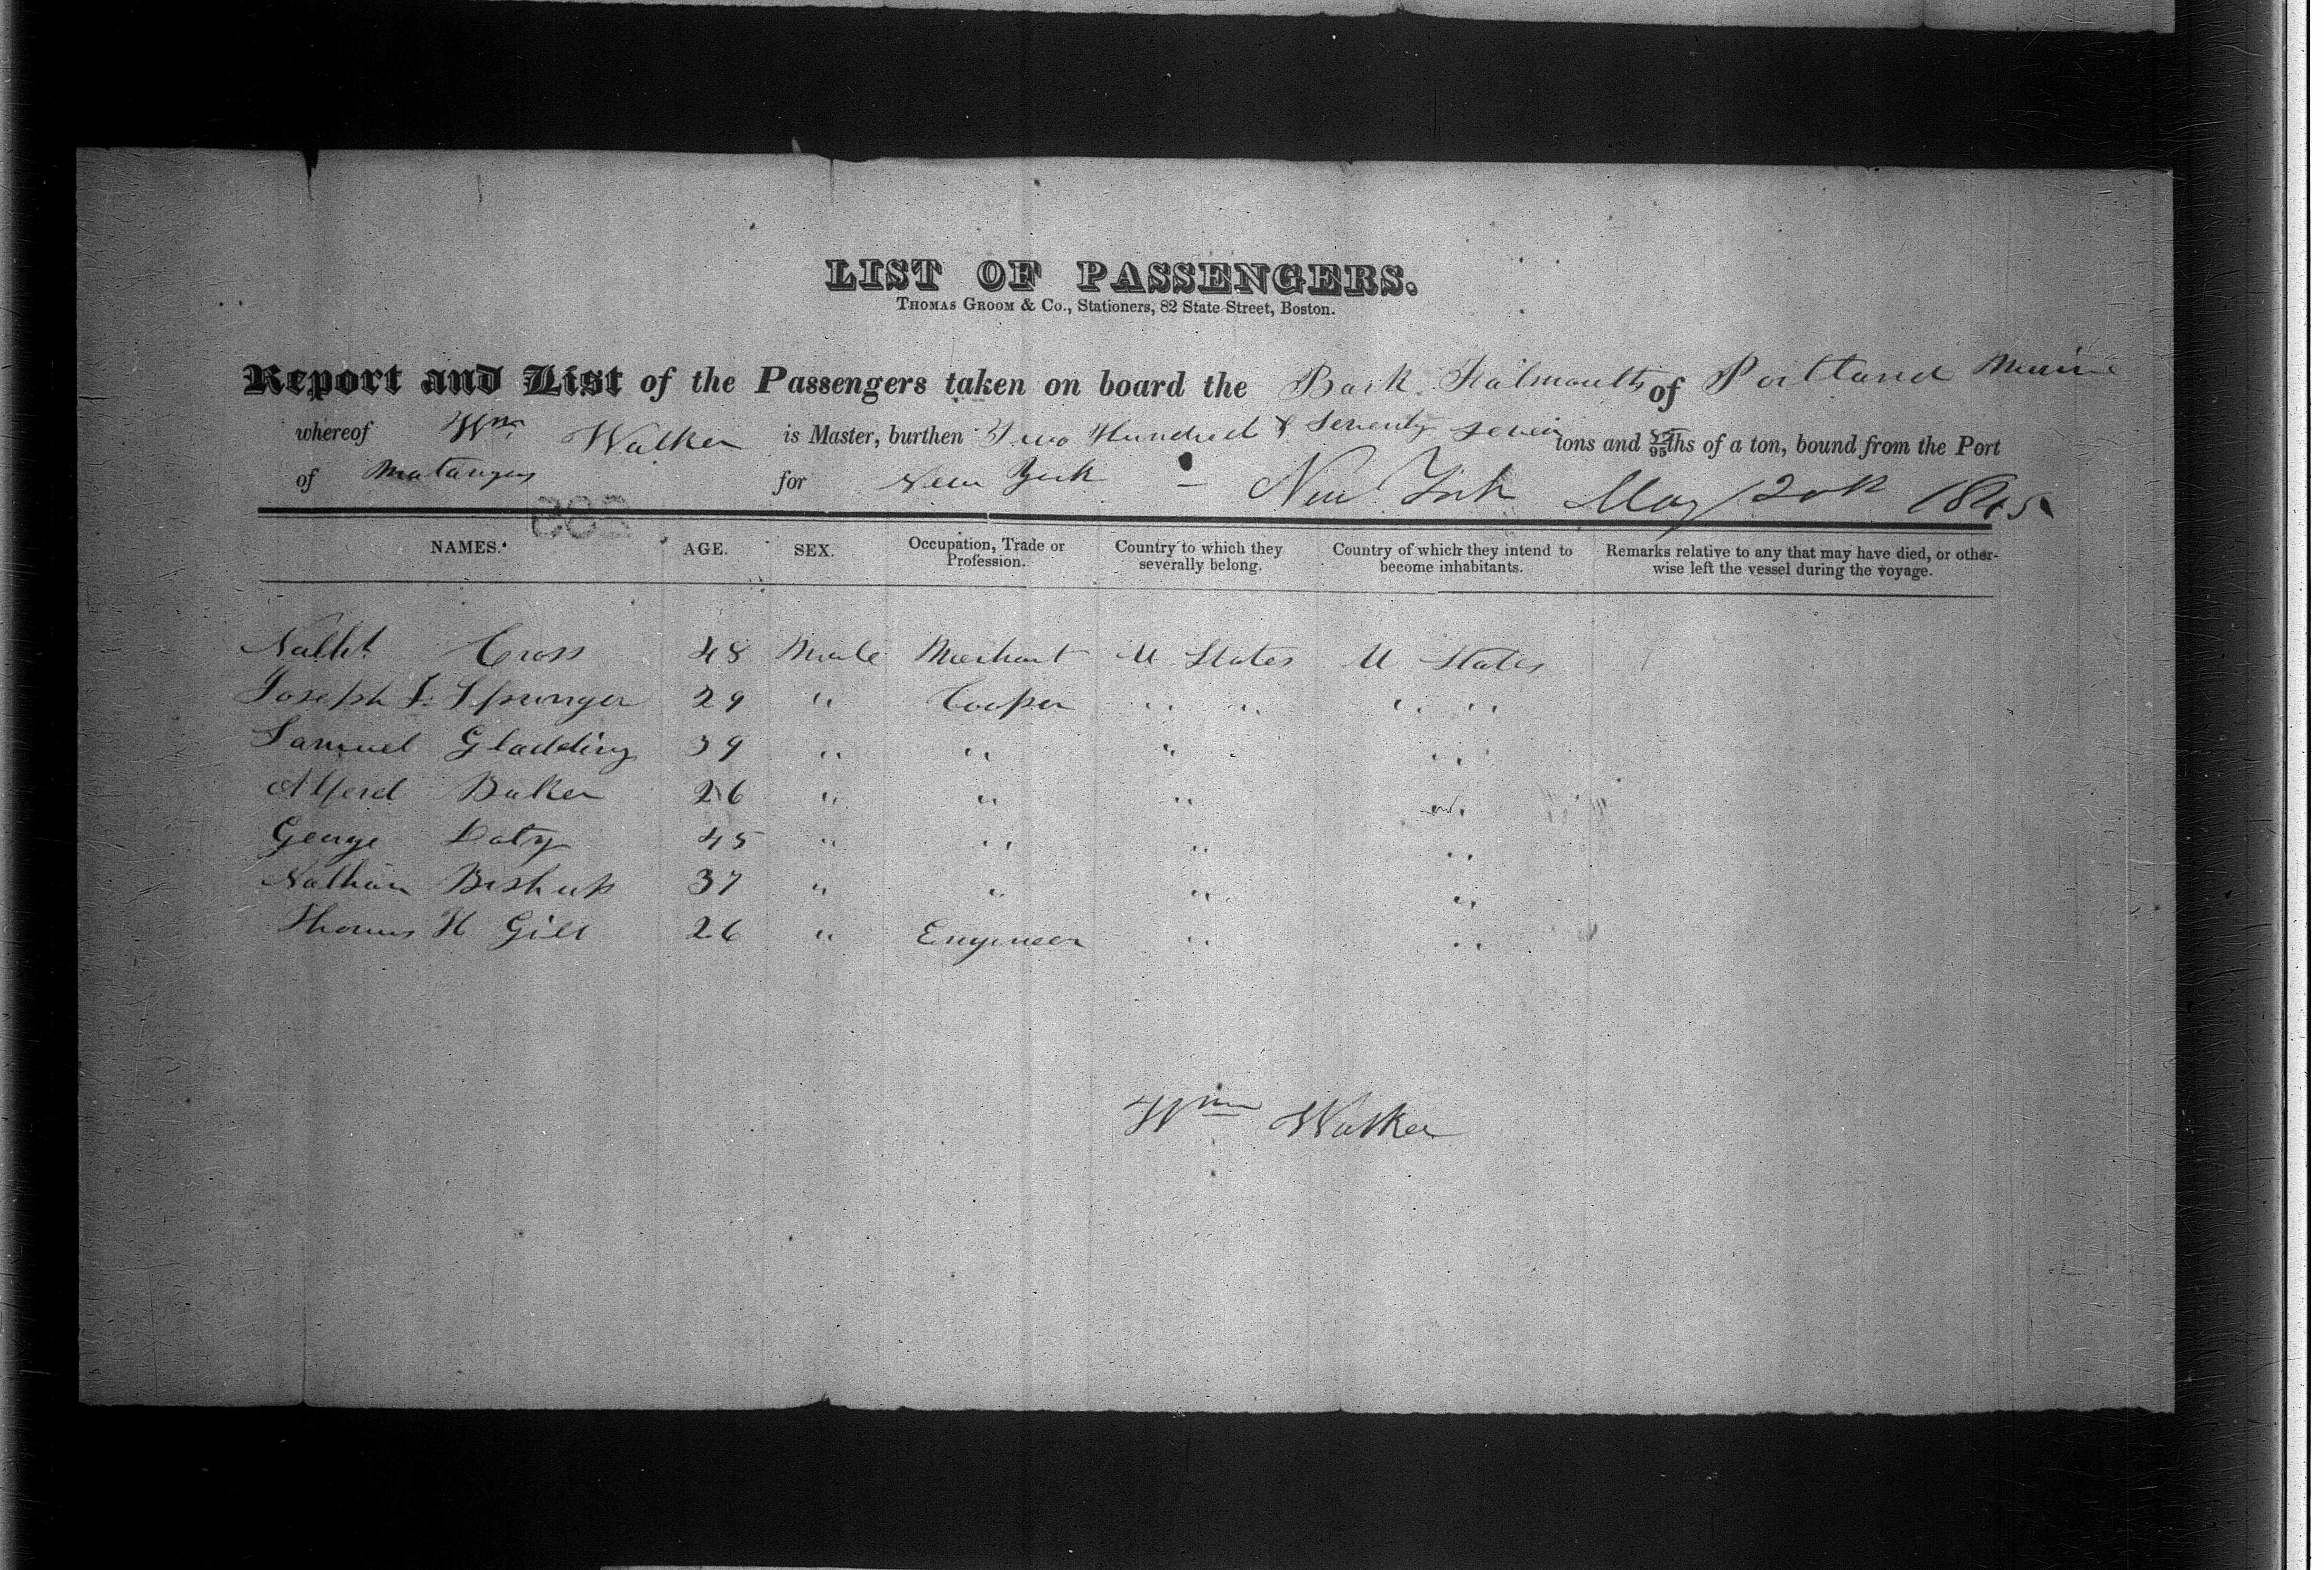 LIST OF PASSENGERS.
THOMAS GROOM & CO., Stationers, 82 State Street, Boston.
Report and List of the Passengers taken on board the Bark Falmouth of Portland Maine
whereof Wm Walker is Master, burthen Two Hundred & Seventy Seven tons and 95ths of a ton, bound from the Port
of Matanzas for New York — New York May 20th 1845
NAMES. AGE. SEX. Occupation, Trade or Profession. Country to which they severally belong. Country of which they intend to become inhabitants. Remarks relative to any that may have died, or otherwise left the vessel during the voyage.
Nathl Cross 48 Male Merchant U States U States
Joseph S. Springer 29 " Cooper " " " "
Samuel Gladding 39 " " " "
Alferd Baker 26 " " " "
George Doty 45 " " " "
Nathan Bishup 37 " " " "
Thomas H Gill 26 " Engineer " "
Wm Walker